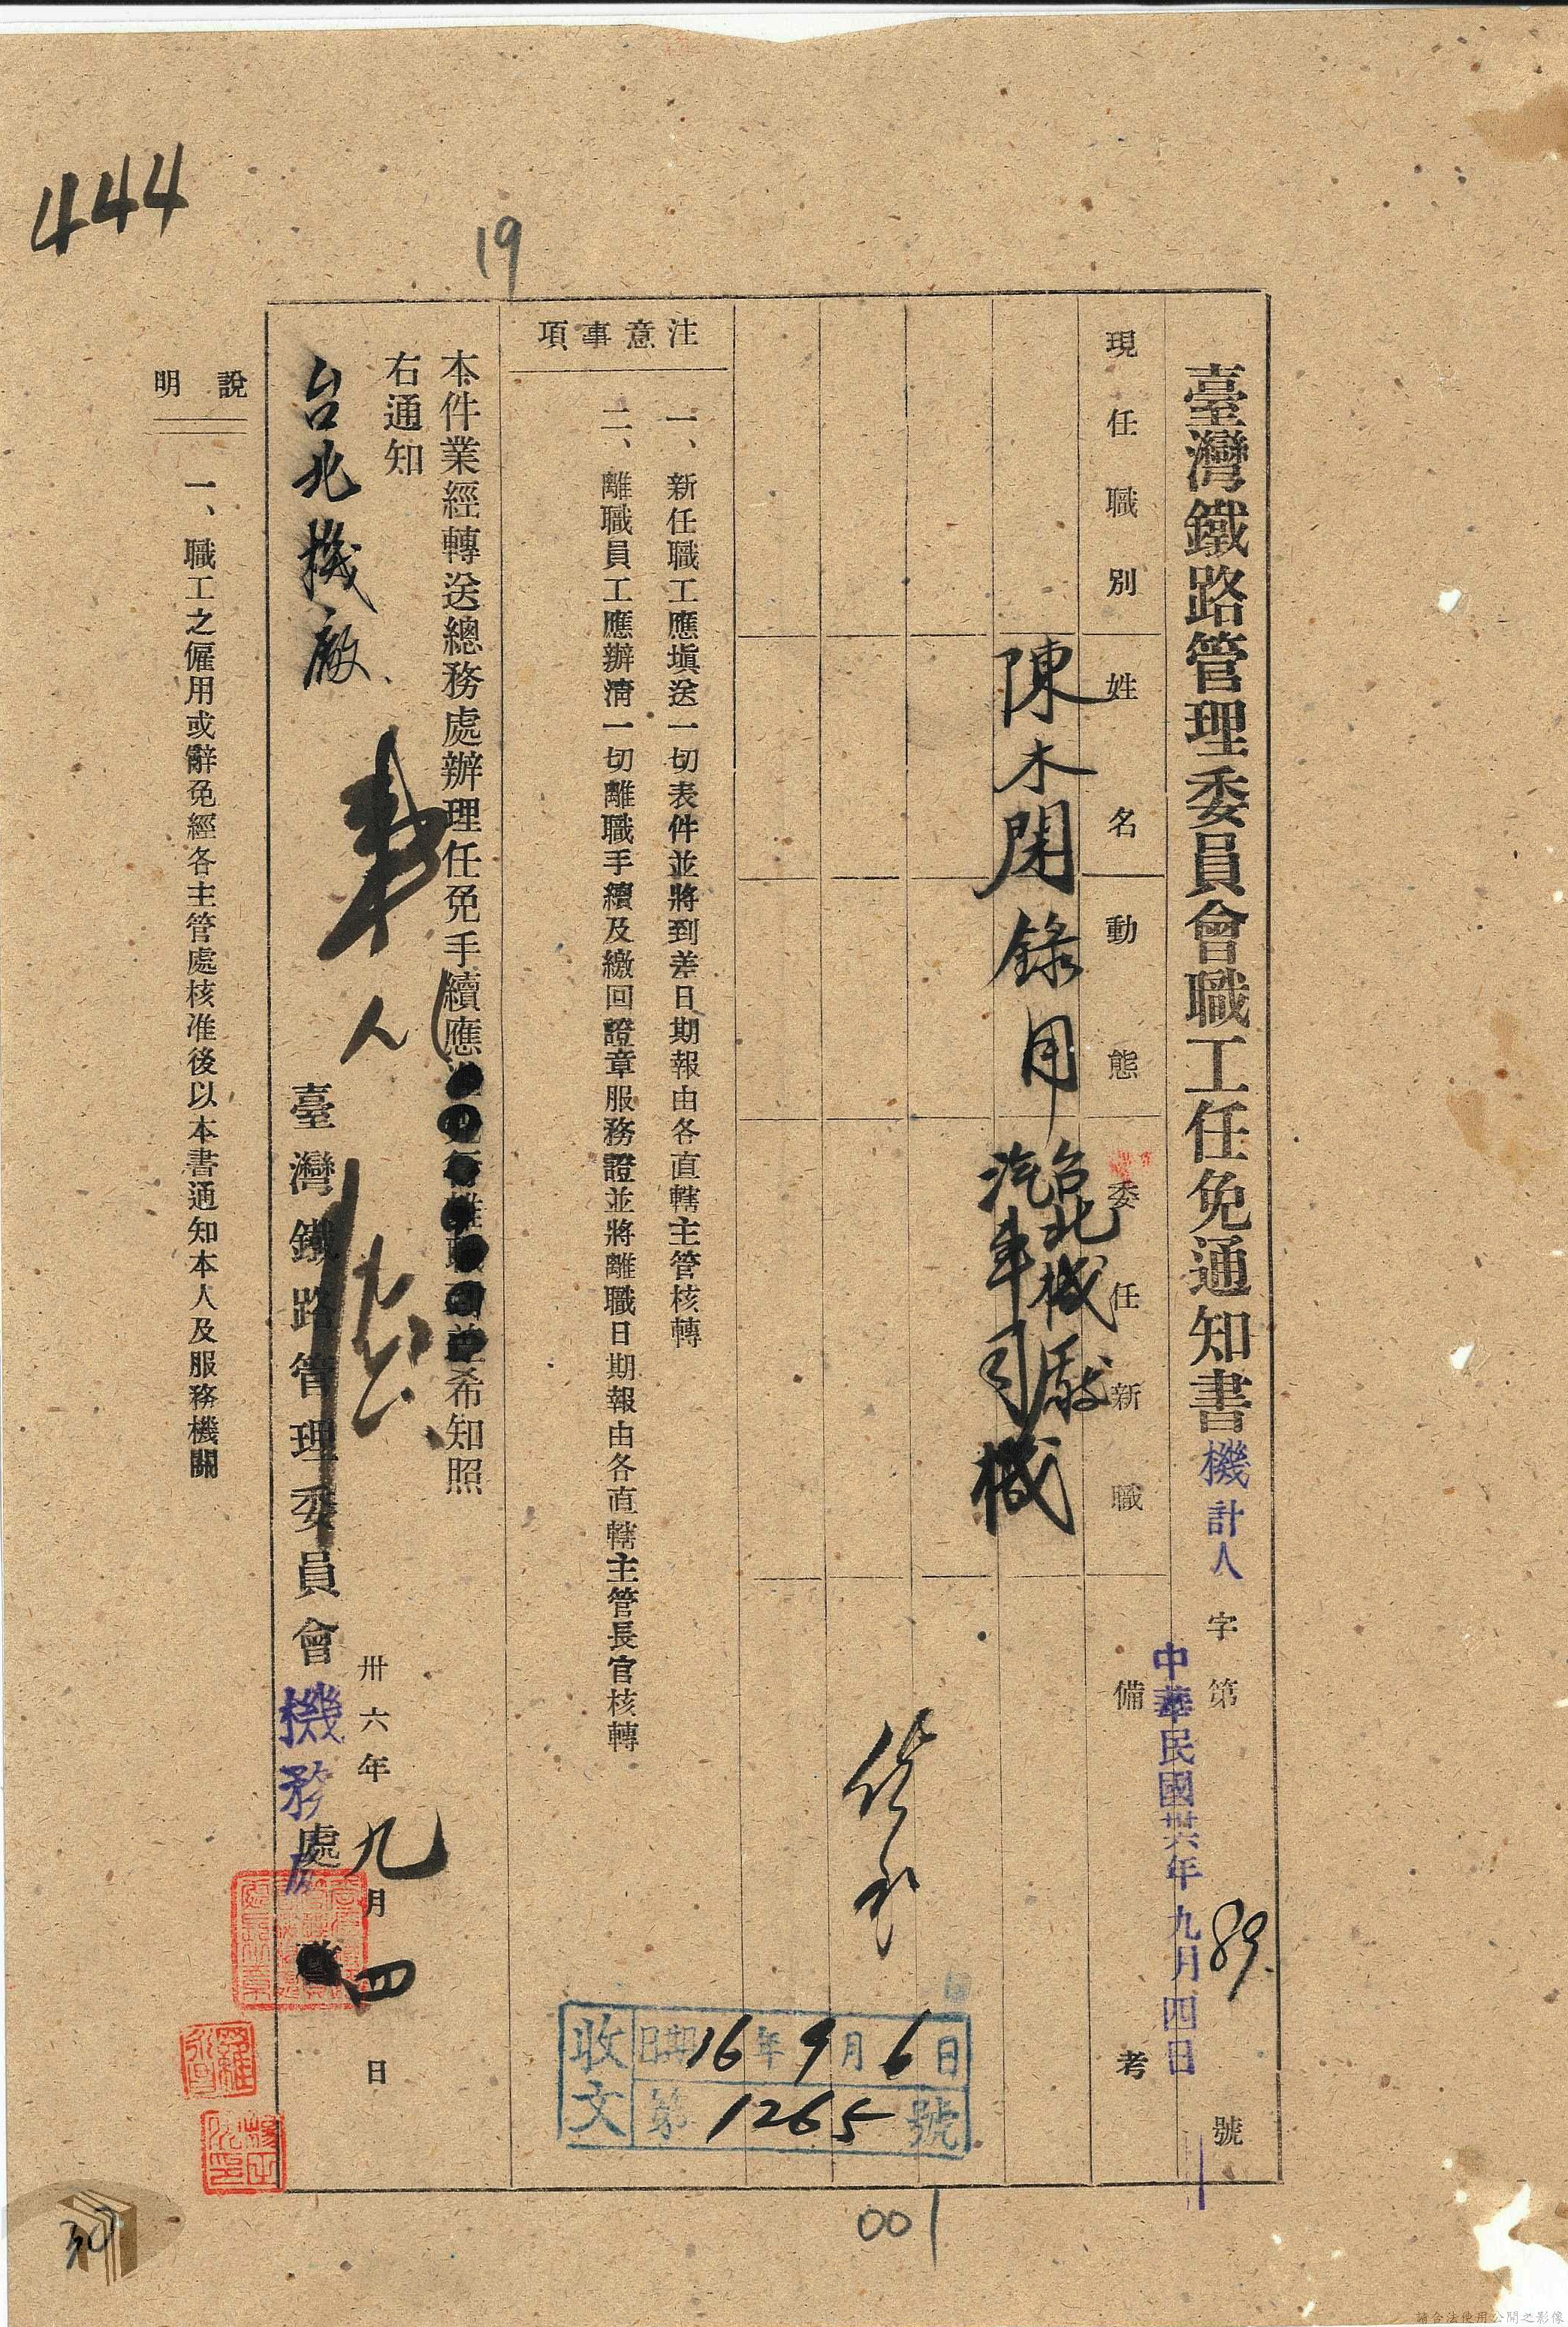 444
19
臺灣鐵路管理委員會職工任免通知書 機計人字第89.號
中華民國卅六年九月四日
現任職別 姓名 動態 委任新職 備考
陳木閑 錄用 台北機廠
汽車司機
注意事項
一、新任職工應塡送一切表件並將到差日期報由各直轄主管核轉
二、離職員工應辦清一切離職手續及繳回證章服務證並將離職日期報由各直轄主管長官核轉
本件業經轉送總務處辦理任免手續應希知照
右通知
台北機廠
卅六年九月四日
臺灣鐵路管理委員會機務處
說明
一、職工之僱用或辭免經各主管處核准後以本書通知本人及服務機關
收文
日期16年9月6日
第1265號
001
30
請合法使用公開之影像